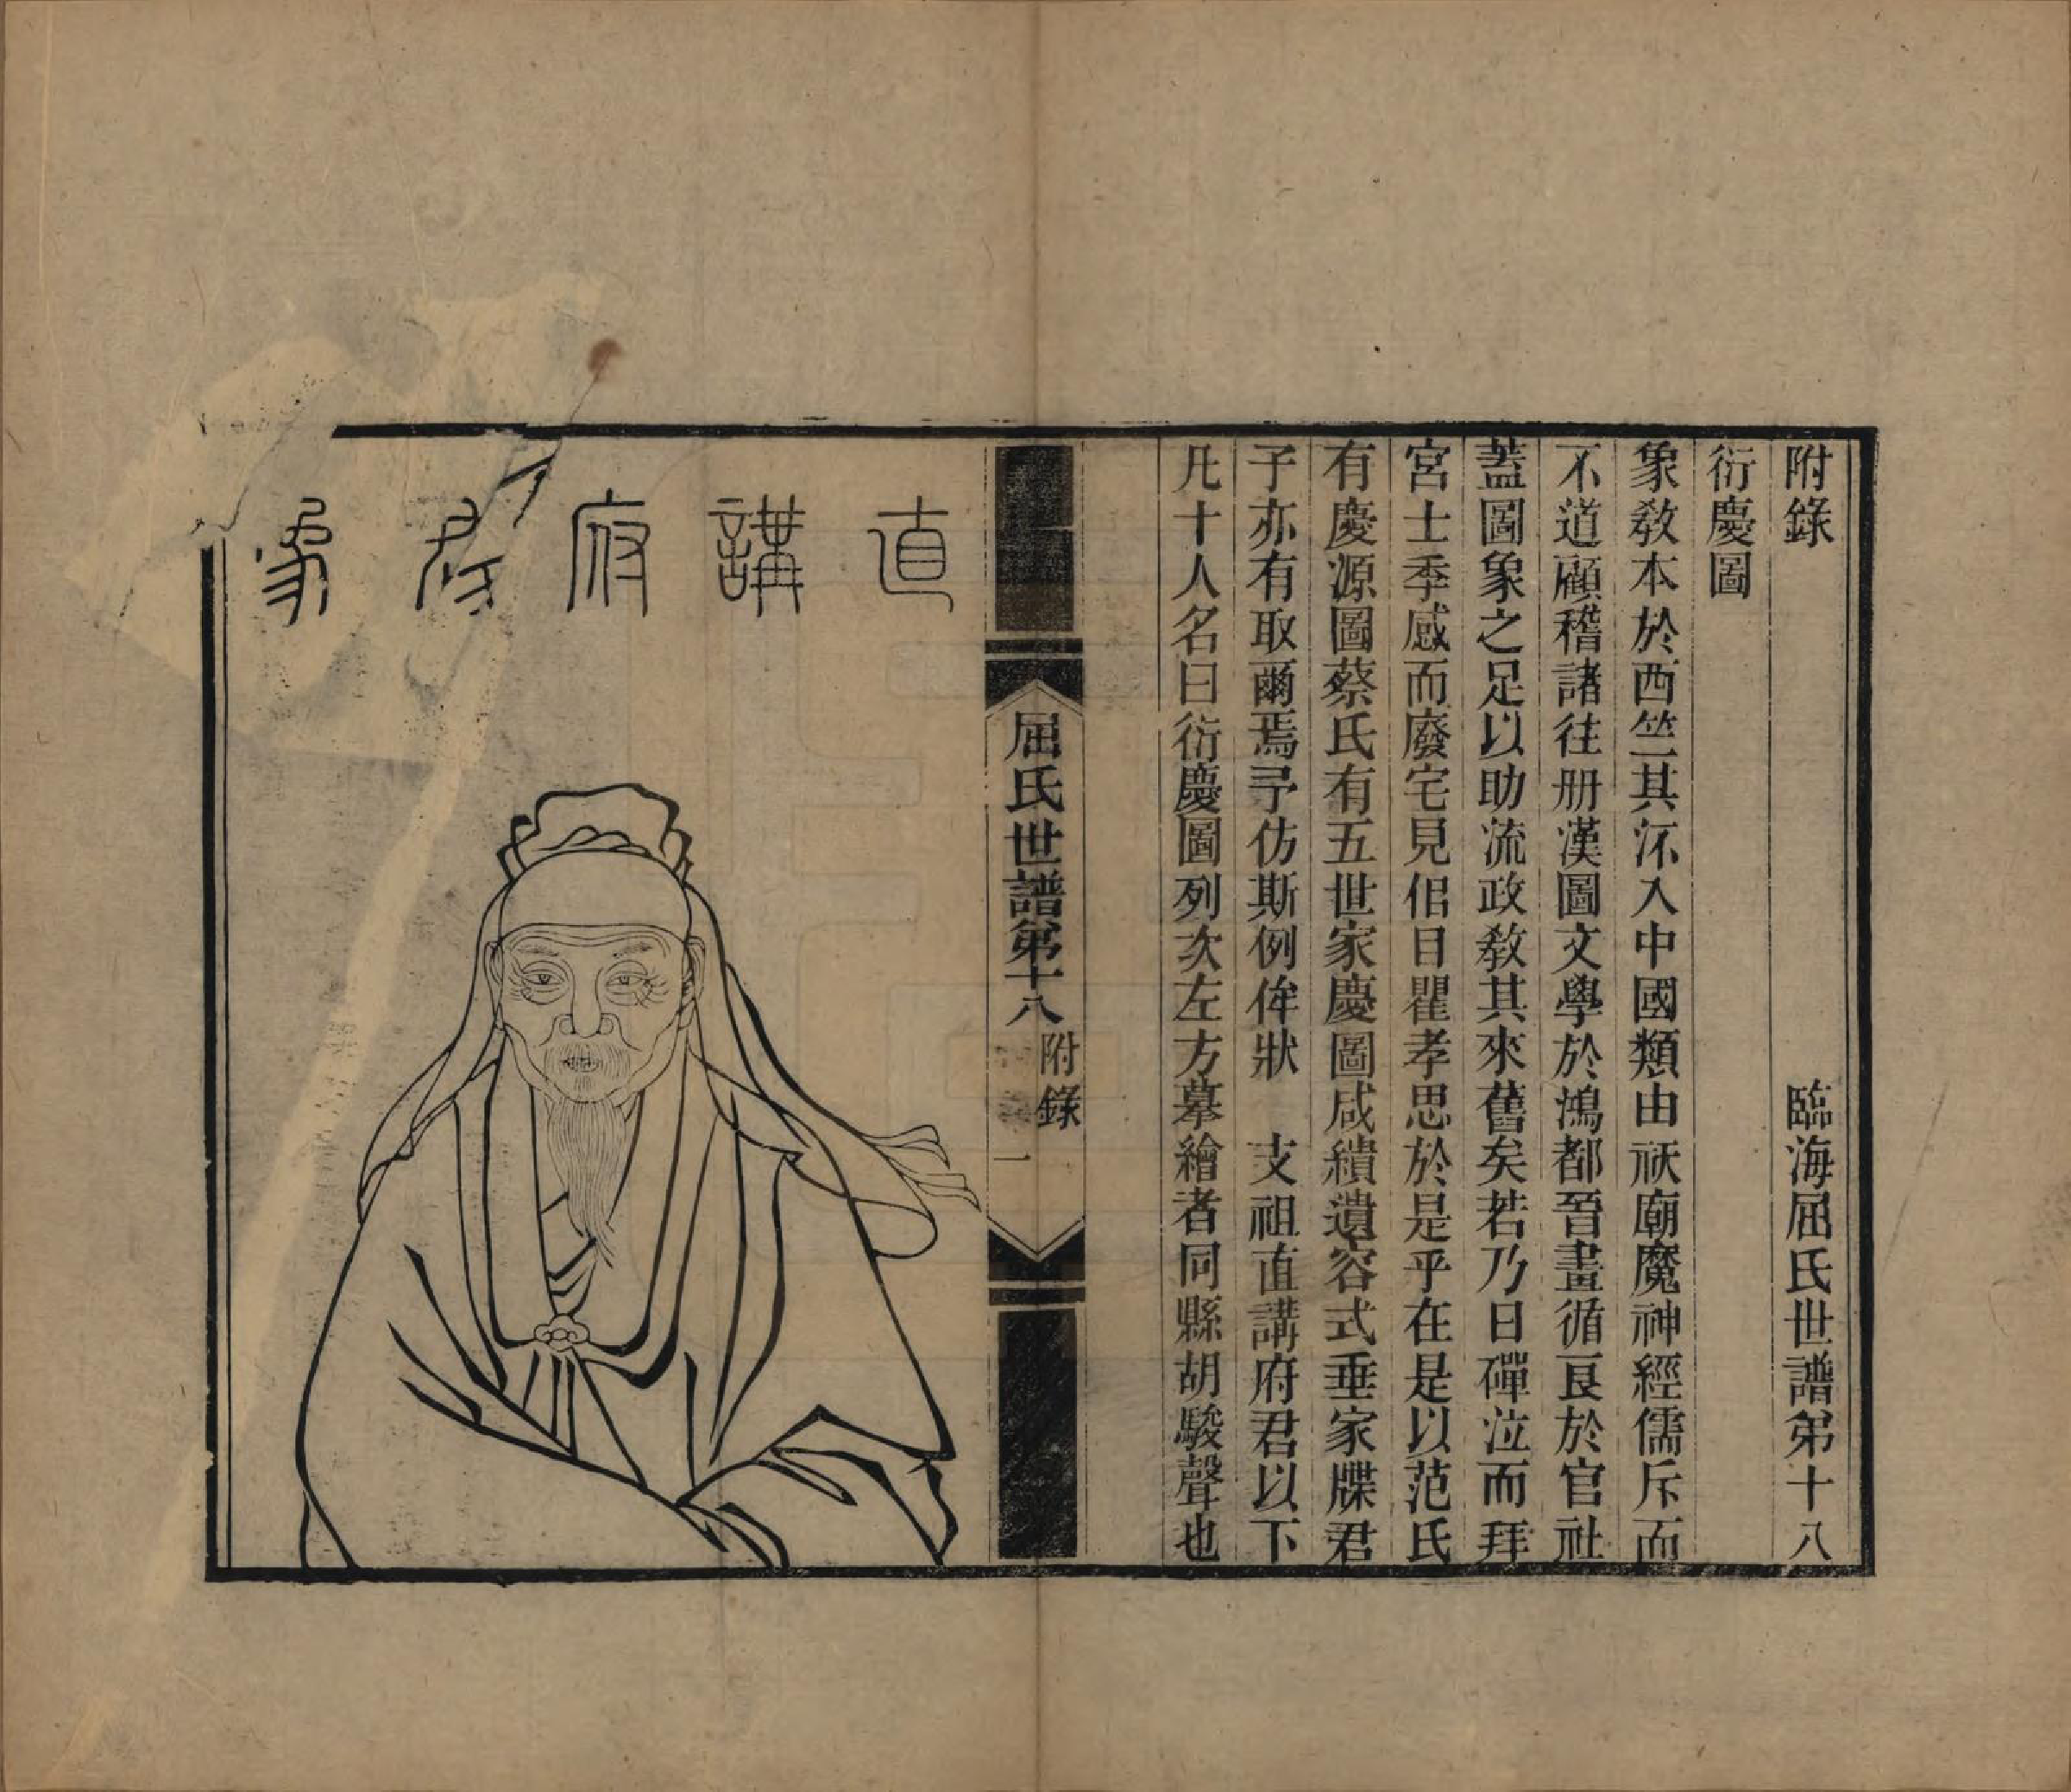 附錄　臨海屈氏世譜弟十八
衍慶圖
象敎本於西竺其沠入中國類由祆廟魔神經儒斥而
不道顧稽諸往册漢圖文學於鴻都晉畫循良於官社
蓋圖象之足以助流政敎其來舊矣若乃日磾泣而拜
宮士季感而廢宅見佀目瞿孝思於是乎在是以范氏
有慶源圖蔡氏有五世家慶圖咸繢遺容式垂家牒君
子亦有取爾焉予仿斯例侔狀　支祖直講府君以下
凡十人名曰衍慶圖列次左方摹繪者同縣胡駿聲也
屈氏世譜弟十八　附錄　一
直講府君象